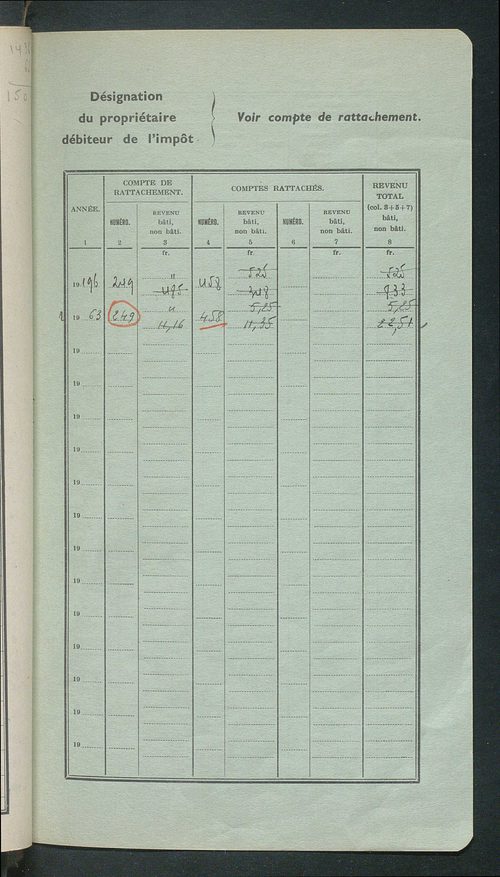 Désignation
du propriétaire
débiteur de l'impôt
Voir compte de rattachement.
ANNÉE.
COMPTE DE
RATTACHEMENT.
COMPTES RATTACHÉS.
REVENU
TOTAL
(col. 3+5+7)
bâti,
non bâti.
NUMÉRO.
REVENU
bâti,
non bâti.
NUMÉRO.
REVENU
bâti,
non bâti.
NUMÉRO.
REVENU
bâti,
non bâti.
1 2 3 4 5 6 7 8
fr. fr. fr. fr.
" 525 525
19 249 485 458 933
" 5,25 5,25
19 63 249 11,16 458 11,35 22,51
19
19
19
19
19
19
19
19
19
19
19
19
19